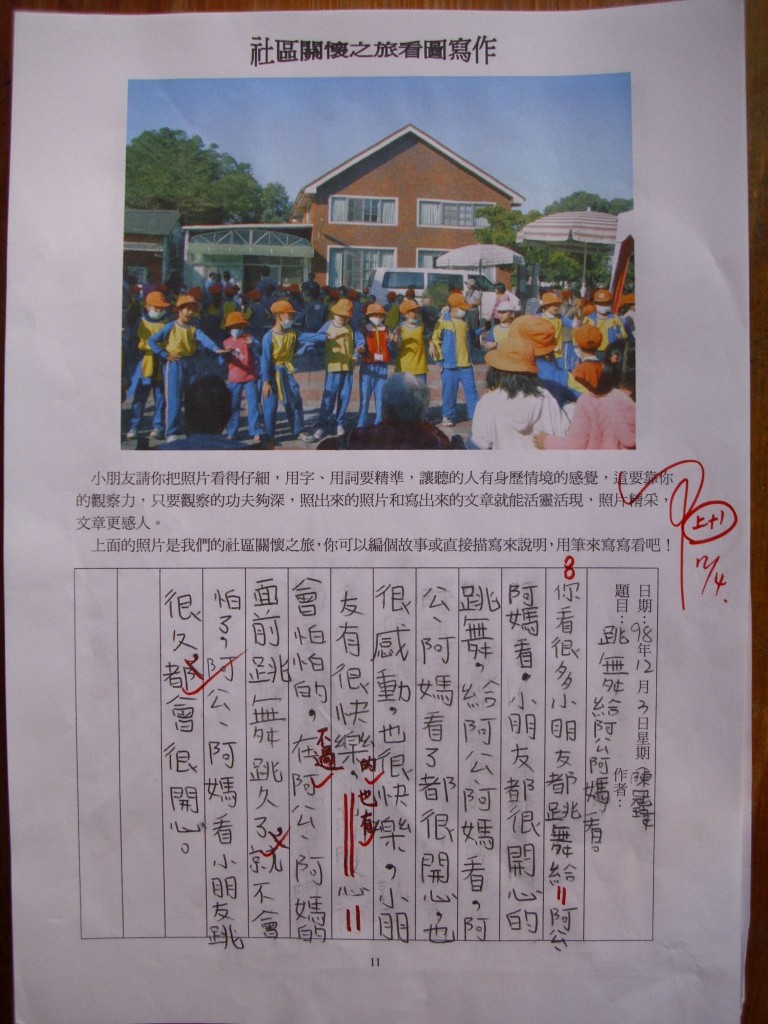 社區關懷之旅看圖寫作
小朋友請你把照片看得仔細，用字、用詞要精準，讓聽的人有身歷情境的感覺，這要靠你
的觀察力，只要觀察的功夫夠深，照出來的照片和寫出來的文章就能活靈活現，照片精采，
文章更感人。
上面的照片是我們的社區關懷之旅，你可以編個故事或直接描寫來說明，用筆來寫寫看吧！
上+1
12/4.
日期：98年12月3日星期
作者：陳
題目：跳舞給阿公阿媽看。
8
你看很多小朋友都跳舞給阿公、
阿媽看。小朋友都很開心的
跳舞，給阿公阿媽看，阿
公、阿媽看了都很開心，也
很感動，也很快樂，小朋
友有很快樂，心
的也有
會怕怕的，在阿公、阿媽的
不過
面前跳舞跳久了就不會
怕了，阿公、阿媽看小朋友跳
很久都會很開心。
11